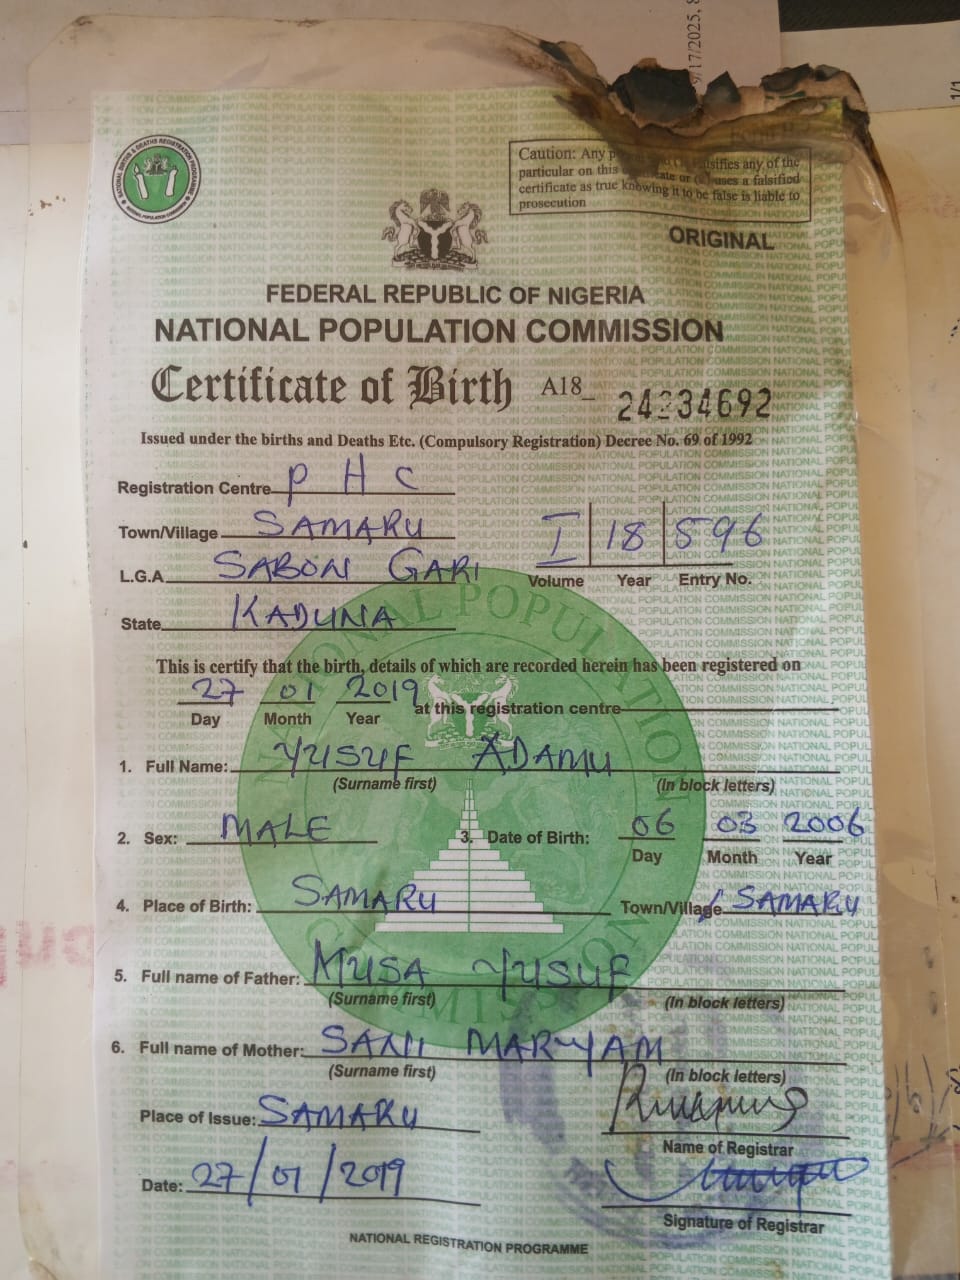 9/17/2025, 8
1/1
NATIONAL BIRTHS & DEATHS REGISTRATION PROGRAMME
NATIONAL POPULATION COMMISSION
Caution: Any falsifies any of the
particular on this or uses a falsified
certificate as true knowing it to be false is liable to
prosecution
ORIGINAL
FEDERAL REPUBLIC OF NIGERIA
NATIONAL POPULATION COMMISSION
Certificate of Birth A18_ 24234692
Issued under the births and Deaths Etc. (Compulsory Registration) Decree No. 69 of 1992
Registration Centre P H C
Town/Village SAMARU I 18 596
L.G.A. SABON GARI Volume Year Entry No.
State KADUNA
This is certify that the birth, details of which are recorded herein has been registered on
27 01 2019 at this registration centre
Day Month Year
1. Full Name: YUSUF ADAMU
(Surname first) (In block letters)
2. Sex: MALE 3. Date of Birth: 06 03 2006
Day Month Year
4. Place of Birth: SAMARU Town/Village SAMARU
5. Full name of Father: MUSA YUSUF
(Surname first) (In block letters)
6. Full name of Mother: SANI MARYAM
(Surname first) (In block letters)
Place of Issue: SAMARU
Name of Registrar
Date: 27/01/2019
Signature of Registrar
NATIONAL REGISTRATION PROGRAMME
NATIONAL POPULATION COMMISSION